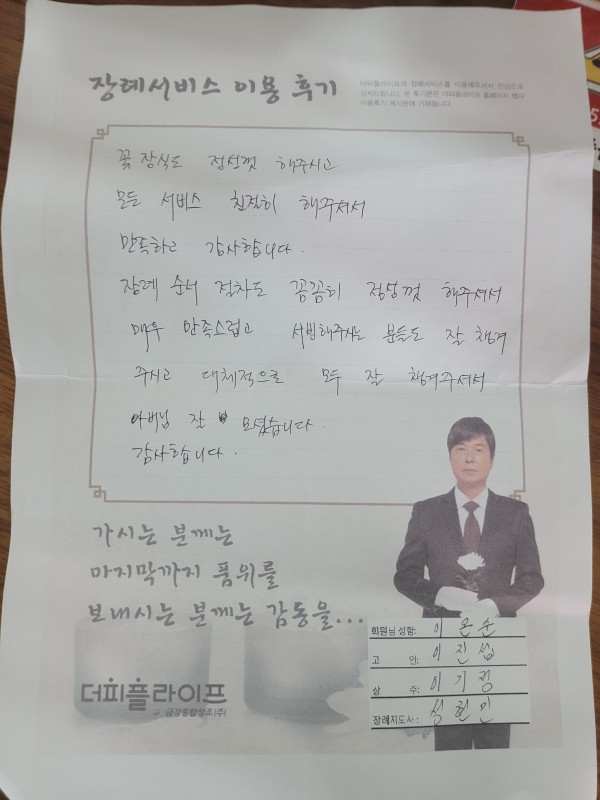 장례서비스 이용 후기
더피플라이프의 장례서비스를 이용해주셔서 진심으로
감사드립니다. 본 후기문은 더피플라이프 홈페이지 행사
이용후기 게시판에 기재됩니다.
꽃 장식도 정성껏 해주시고
모든 서비스 친절히 해주셔서
만족하고 감사합니다.
장례 순서 절차도 꼼꼼히 정성껏 해주셔서
매우 만족스럽고 서빙해주시는 분들도 잘 챙겨
주시고 대체적으로 모두 잘 챙겨주셔서
아버님 잘 모셨습니다.
감사합니다.
가시는 분께는
마지막까지 품위를
보내시는 분께는 감동을...
회원님 성함: 이은순
고 인: 이진섭
상 주: 이기정
장례지도사: 석현민
더피플라이프
구. 금강종합상조(주)